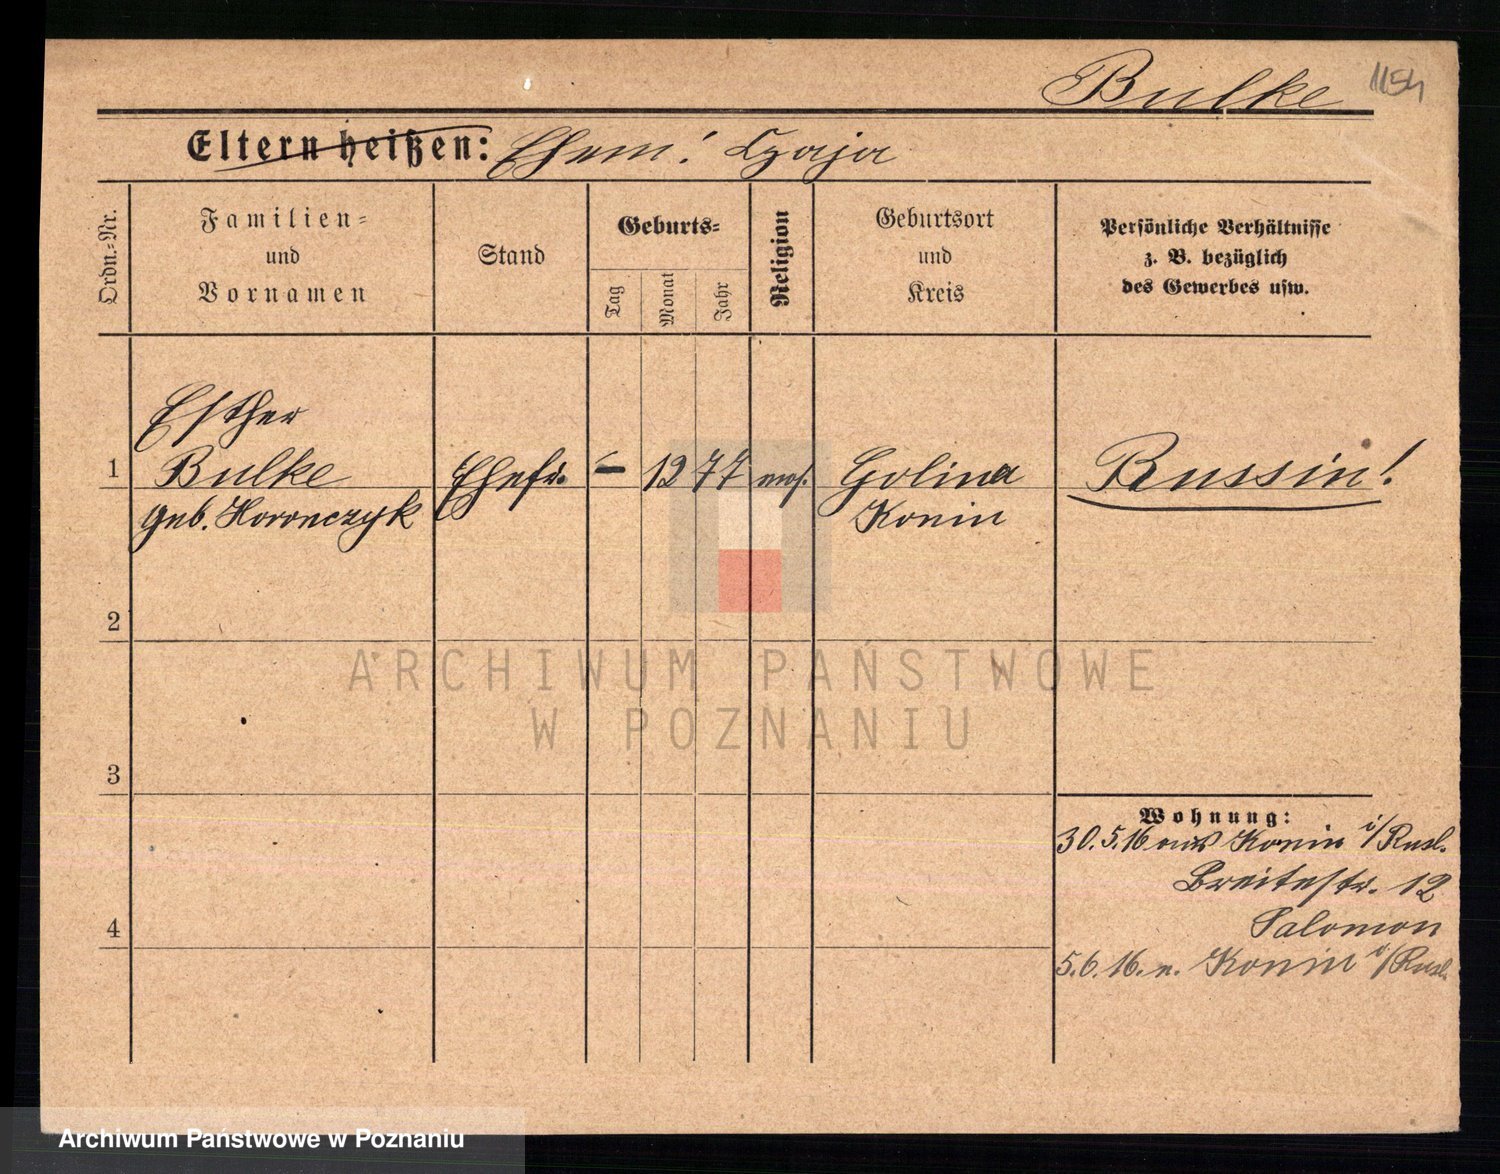 Bulke 1154
Eltern heißen: Ehem: Czaja
Ordn.-Nr.
Familien-
und
Vornamen
Stand
Geburts-
Tag
Monat
Jahr
Religion
Geburtsort
und
Kreis
Persönliche Verhältnisse
z. B. bezüglich
des Gewerbes usw.
Esther
1 Bulke Ehefr. – 12 77 mos. Golina Russin!
geb. Horonczyk Konin
2
3
Wohnung:
30.5.16 aus Konin i/Rusl.
Breitestr. 12
Salomon
4
5.6.16. n. Konin i/Rusl.
ARCHIWUM PAŃSTWOWE
W POZNANIU
Archiwum Państwowe w Poznaniu